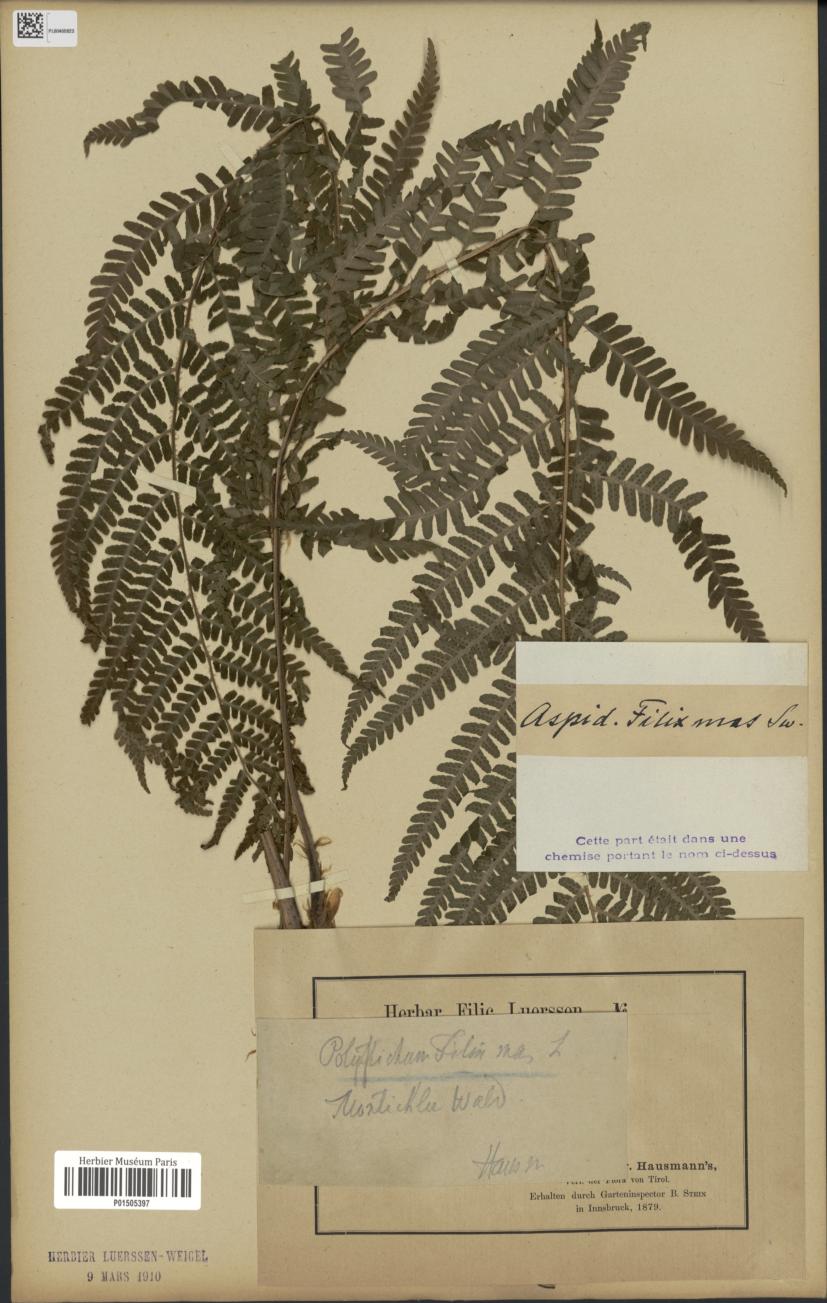 PL00400923
Aspid. Filix mas Sw.
Cette part était dans une
chemise portant le nom ci-dessus
Herbar. Filic. Luerssen.
Polystichum Filix mas L
Wald.
Hausm
Hausmann's,
Flora von Tirol.
Erhalten durch Garteninspector B. Stein
in Innsbruck, 1879.
Herbier Muséum Paris
P01505397
HERBIER LUERSSEN-WEIGEL
9 MARS 1910